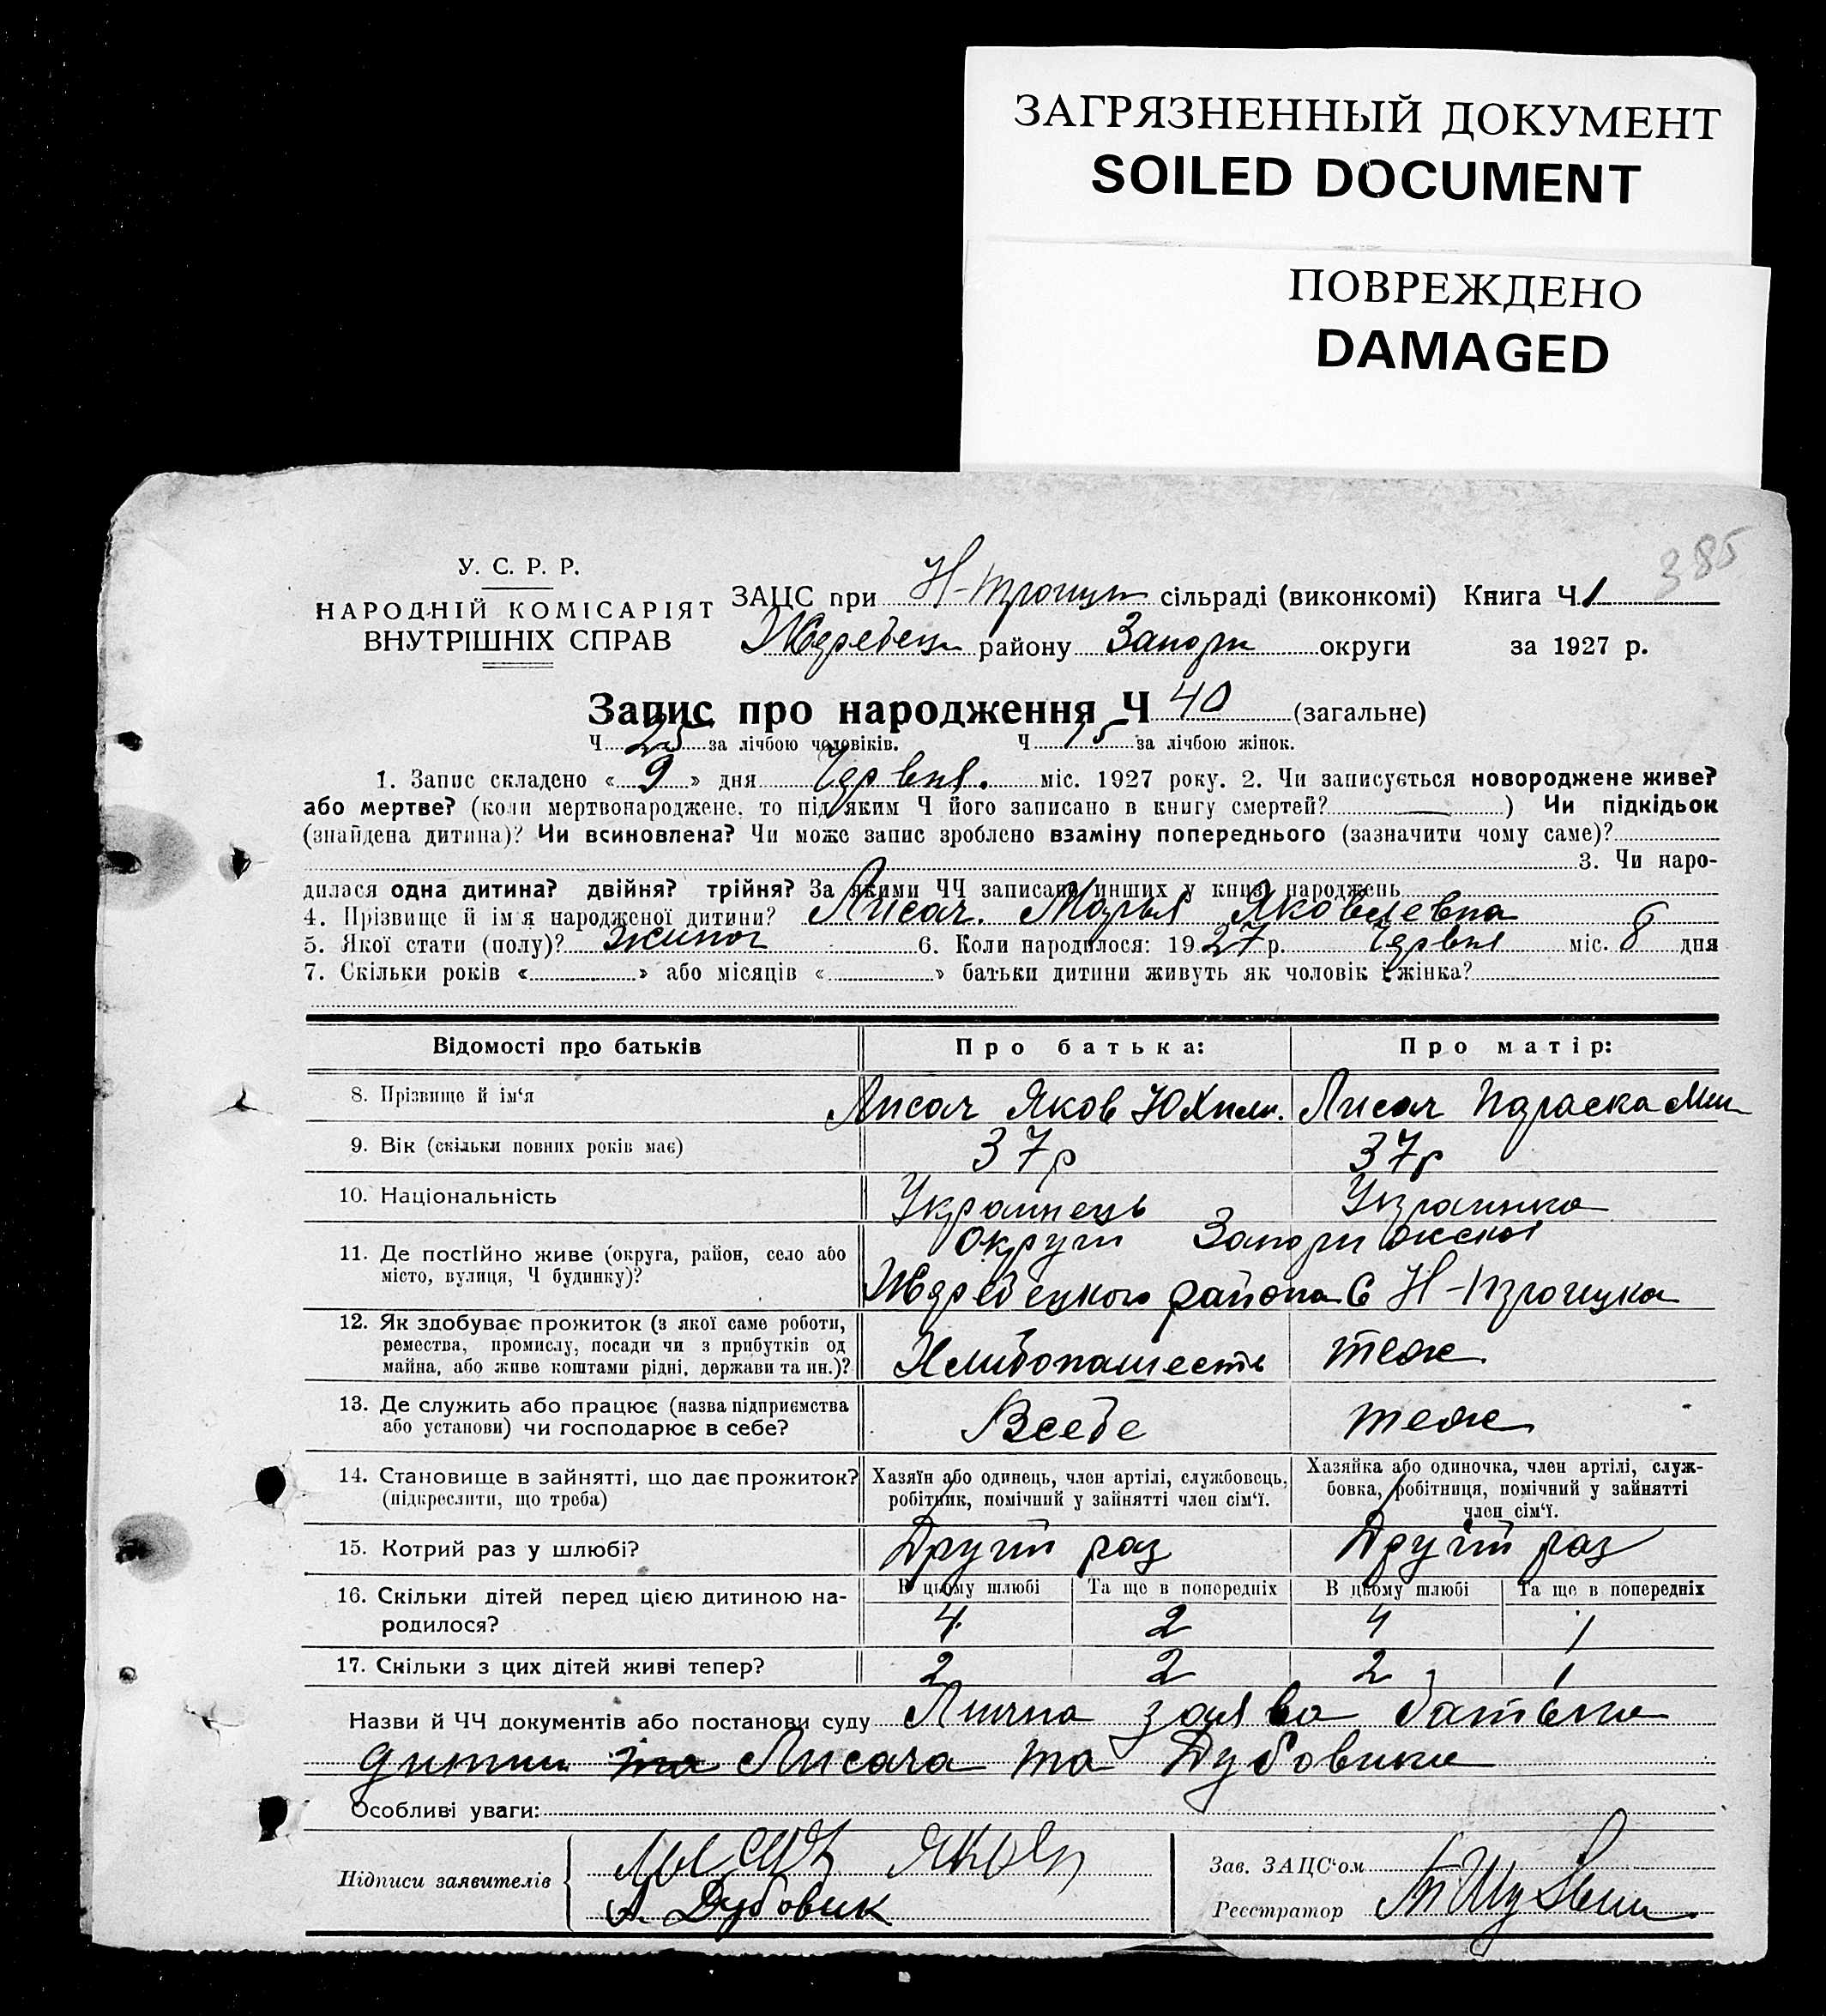 ЗАГРЯЗНЕННЫЙ ДОКУМЕНТ
SOILED DOCUMENT
ПОВРЕЖДЕНО
DAMAGED
385
У. С. Р. Р.
НАРОДНІЙ КОМІСАРІЯТ
ВНУТРІШНІХ СПРАВ
ЗАЦС при Н-Троицк сільраді (виконкомі) Книга Ч 1
Жеребец району Запори округи за 1927 р.
Запис про народження Ч 40 (загальне)
Ч 25 за лічбою чоловіків. Ч 15 за лічбою жінок.
1. Запис складено « 9 » дня Червня. міс. 1927 року. 2. Чи записується новороджене живе?
або мертве? (коли мертвонароджене, то під яким Ч його записано в книгу смертей? — ) Чи підкідьок
(знайдена дитина)? Чи всиновлена? Чи може запис зроблено взаміну попереднього (зазначити чому саме)?
3. Чи наро-
дилася одна дитина? двійня? трійня? За якими ЧЧ записано инших у книзі народжень
4. Прізвище й ім'я народженої дитини? Лисач. Марья Яковлевна
5. Якої стати (полу)? жиноч 6. Коли народилося: 1927 р. Червня міс. 8 дня
7. Скільки років « » або місяців « » батьки дитини живуть як чоловік і жінка?
Відомості про батьків Про батька: Про матір:
8. Прізвище й ім'я Лисач Яков Юхим. Лисач Параска
9. Вік (скільки повних років має) 37р 37р
10. Національність Украінець Украинка
11. Де постійно живе (округа, район, село або
місто, вулиця, Ч будинку)?
округи Запорижскої
Жеребецкого района С Н-Троицка
12. Як здобуває прожиток (з якої саме роботи,
ремества, промислу, посади чи з прибутків од
майна, або живе коштами рідні, держави та ин.)?
Хлибопашесть теж
13. Де служить або працює (назва підприємства
або установи) чи господарює в себе?
Всебе теж
14. Становище в зайнятті, що дає прожиток?
(підкреслити, що треба)
Хазяїн або одинець, член артілі, службовець,
робітник, помічний у зайнятті член сім'ї.
Хазяйка або одиночка, член артілі, служ-
бовка, робітниця, помічний у зайнятті
член сім'ї.
15. Котрий раз у шлюбі? Другий раз Другий раз
16. Скільки дітей перед цією дитиною на-
родилося?
В цьому шлюбі Та ще в попередніх В цьому шлюбі Та ще в попередніх
4 2 4 1
17. Скільки з цих дітей живі тепер? 2 2 2 1
Назви й ЧЧ документів або постанови суду Лична заява батька
дитини та Лисача та Дубовика
Особливі уваги:
Підписи заявителів
Лысач Яков
А. Дубовик
Зав. ЗАЦС'ом
Реєстратор